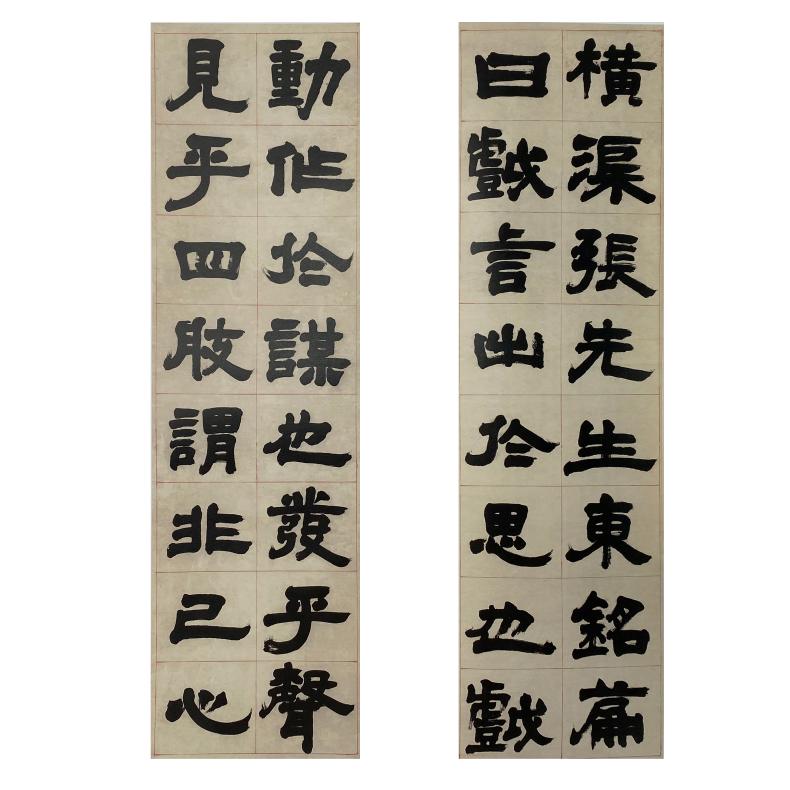 橫渠張先生東銘篇
曰戲言出於思也戲
動作於謀也發乎聲
見乎四肢謂非己心